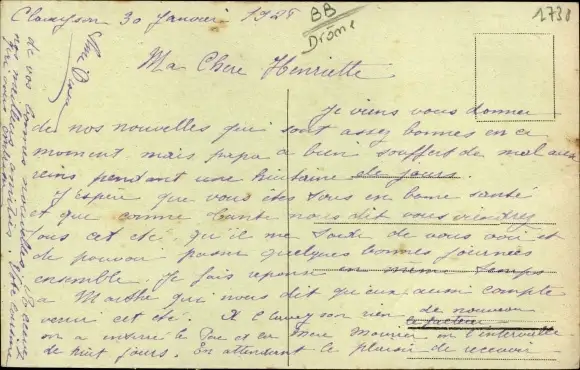 Claveyson 30 Janvier 1925
BB
Drôme
1730
Ma Chère Henriette
Je viens vous donner
de nos nouvelles qui sont assez bonnes en ce
moment mais papa a bien souffert de mal aux
reins pendant une huitaine de jours.
J'espère que vous êtes tous en bonne santé
et que comme Tante nous dit vous viendrez
tous cet été. Qu'il me tarde de vous voir et
de pouvoir passer quelques bonnes journées
ensemble. Je fais réponse en même temps
a Marthe qui nous dit qu'eux aussi compte
venir cet été. A Claveyson rien de nouveau
le facteur
on a enterré le Pac et sa mère Mourier en l'intervalle
de huit jours. En attendant le plaisir de recevoir
de vos bonnes nouvelles Recevez
nos meilleurs
Votre Cousine